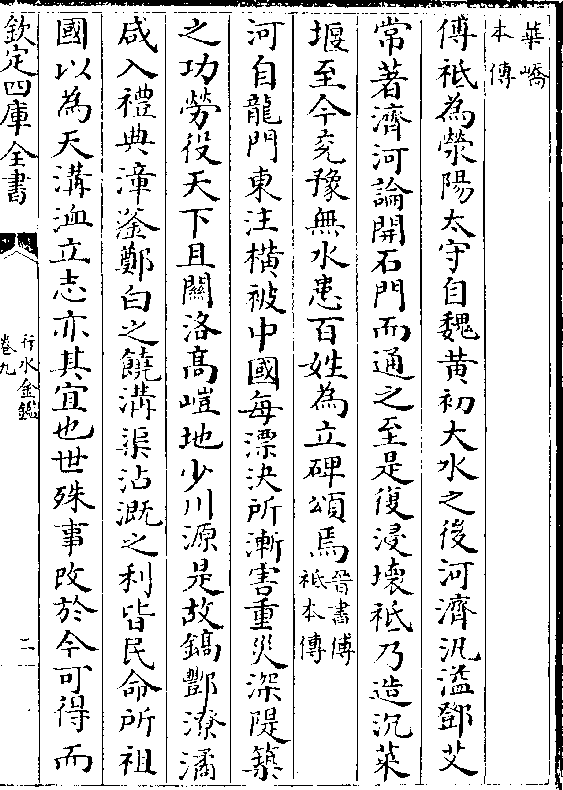 華嶠
本傳
傅祗為滎陽太守自魏黄初大水之後河濟汎溢鄧艾
常著濟河論開石門而通之至是復浸壊祗乃造沉萊
堰至今兖豫無水患百姓為立碑頌焉晉書傅
祗本傳
河自龍門東注横被中國每漂決所漸害重災深隄築
之功勞役天下且關洛髙嵦地少川源是故鎬酆潦潏
咸入禮典漳滏鄭白之饒溝渠沾溉之利皆民命所祖
國以為天溝洫立志亦其宜也世殊事改於今可得而
欽定四庫全書
行水金鑑
卷九
二